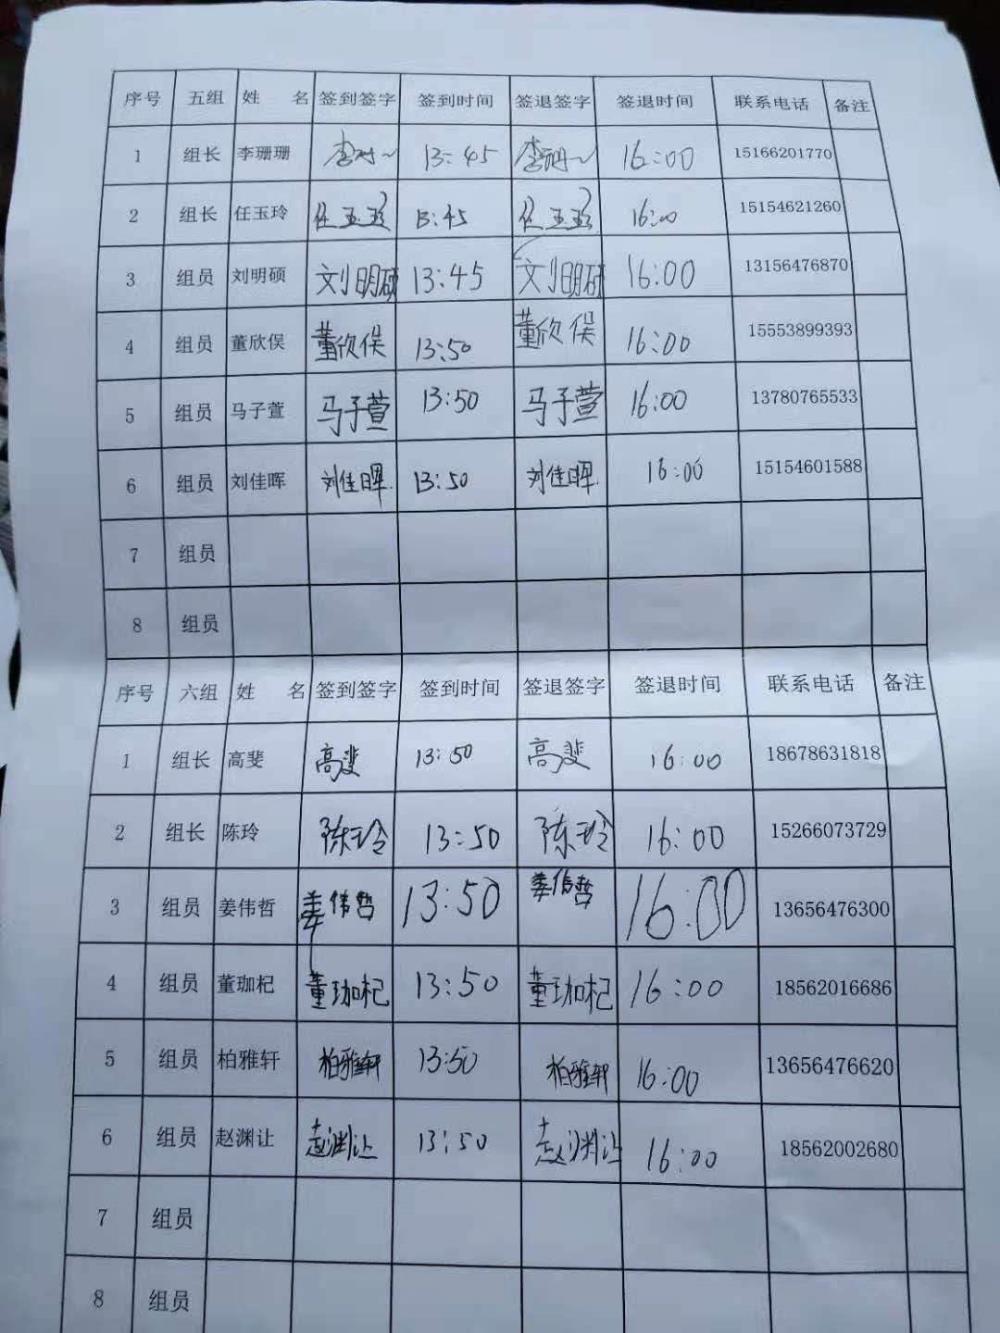 序号 五组 姓 名 签到签字 签到时间 签退签字 签退时间 联系电话 备注
1 组长 李珊珊 13:45 16:00 15166201770
2 组长 任玉玲 任玉玲 13:45 任玉玲 16:00 15154621260
3 组员 刘明硕 刘明硕 13:45 刘明硕 16:00 13156476870
4 组员 董欣俣 董欣俣 13:50 董欣俣 16:00 15553899393
5 组员 马子萱 马子萱 13:50 马子萱 16:00 13780765533
6 组员 刘佳晖 刘佳晖 13:50 刘佳晖 16:00 15154601588
7 组员
8 组员
序号 六组 姓 名 签到签字 签到时间 签退签字 签退时间 联系电话 备注
1 组长 高斐 高斐 13:50 高斐 16:00 18678631818
2 组长 陈玲 陈玲 13:50 陈玲 16:00 15266073729
3 组员 姜伟哲 姜伟哲 13:50 姜伟哲 16:00 13656476300
4 组员 董珈杞 董珈杞 13:50 董珈杞 16:00 18562016686
5 组员 柏雅轩 柏雅轩 13:50 柏雅轩 16:00 13656476620
6 组员 赵渊让 赵渊让 13:50 赵渊让 16:00 18562002680
7 组员
8 组员